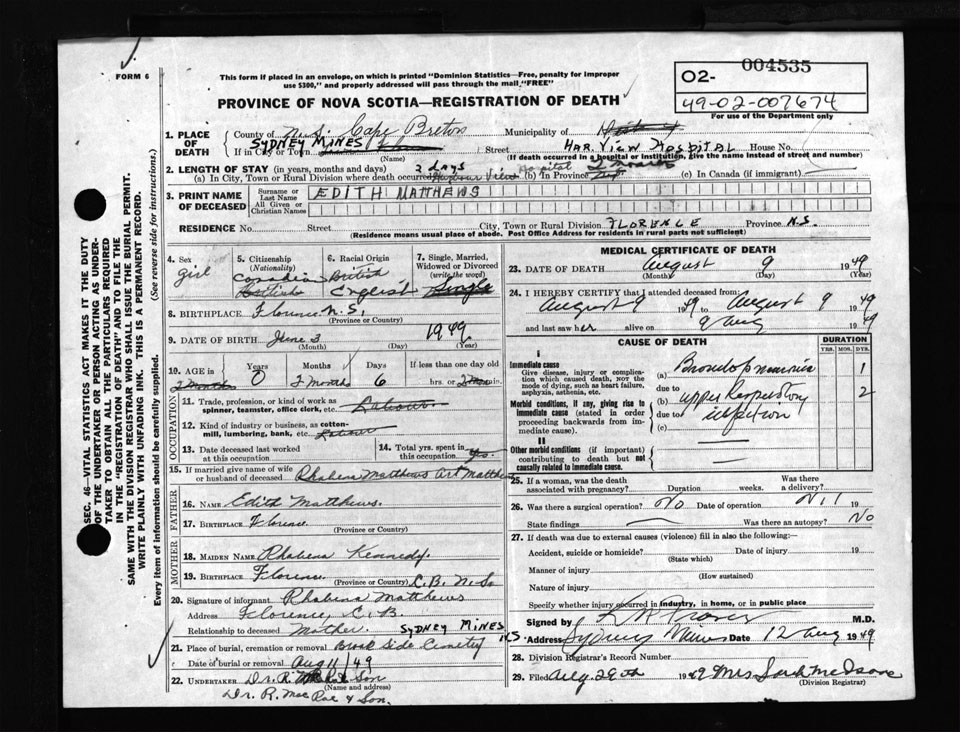 FORM 6
This form if placed in an envelope, on which is printed "Dominion Statistics—Free, penalty for improper
use $300," and properly addressed will pass through the mail "FREE"
PROVINCE OF NOVA SCOTIA—REGISTRATION OF DEATH
004535
O2-
49-02-007674
For use of the Department only
SEC. 46—VITAL STATISTICS ACT MAKES IT THE DUTY
OF THE UNDERTAKER OR PERSON ACTING AS UNDER-
TAKER TO OBTAIN ALL THE PARTICULARS REQUIRED
IN THE "REGISTRATION OF DEATH" AND TO FILE THE
SAME WITH THE DIVISION REGISTRAR WHO SHALL ISSUE THE BURIAL PERMIT.
WRITE PLAINLY WITH UNFADING INK. THIS IS A PERMANENT RECORD.
Every item of information should be carefully supplied. (See reverse side for instructions.)
1. PLACE OF DEATH
County of N.S. Cape Breton Municipality of
If in City or Town SYDNEY MINES Street HAR. VIEW HOSPITAL House No.
(Name) (If death occurred in a hospital or institution, give the name instead of street and number)
2. LENGTH OF STAY (in years, months and days) 2 days Hospital 2 Months
(a) In City, Town or Rural Division where death occurred Harbour View (b) In Province (c) In Canada (if immigrant)
3. PRINT NAME OF DECEASED
Surname or Last Name EDITH MATTHEWS
All Given or Christian Names
RESIDENCE No. Street City, Town or Rural Division FLORENCE Province N.S.
(Residence means usual place of abode. Post Office Address for residents in rural parts not sufficient)
4. Sex girl
5. Citizenship (Nationality) Canadian British
6. Racial Origin British English
7. Single, Married, Widowed or Divorced (write the word) Single
8. BIRTHPLACE Florence N.S.
(Province or Country)
9. DATE OF BIRTH June 3 1949
(Month) (Day) (Year)
10. AGE in 2 Months Years 0 Months 2 Months Days 6 If less than one day old hrs. or min.
OCCUPATION
11. Trade, profession, or kind of work as spinner, teamster, office clerk, etc. Labour
12. Kind of industry or business, as cotton-mill, lumbering, bank, etc. Labour
13. Date deceased last worked at this occupation
14. Total yrs. spent in this occupation yrs.
15. If married give name of wife or husband of deceased Rhabena Matthews Art Matthews
FATHER
16. Name Edith Matthews.
17. BIRTHPLACE Florence.
(Province or Country)
MOTHER
18. MAIDEN NAME Rhabena Kennedy.
19. BIRTHPLACE Florence. C.B. N.S.
(Province or Country)
20. Signature of informant Rhabena Matthews
Address Florence, C.B.
Relationship to deceased Mother.
SYDNEY MINES N.S
21. Place of burial, cremation or removal Brook Side Cemetery
Date of burial or removal Aug 11/49
22. UNDERTAKER Dr. R. Son
(Name and address)
Dr. R. Mac Rae & Son.
MEDICAL CERTIFICATE OF DEATH
23. DATE OF DEATH August 9 1949
(Month) (Day) (Year)
24. I HEREBY CERTIFY that I attended deceased from:
August 9 1949 to August 9 1949
and last saw her alive on 9 Aug 1949
CAUSE OF DEATH
DURATION
YRS. MOS. DYS.
I
Immediate cause
Give disease, injury or complication which caused death, not the mode of dying, such as heart failure, asphyxia, asthenia, etc.
(a) Bronchopneumonia 1
due to
Morbid conditions, if any, giving rise to immediate cause (stated in order proceeding backwards from immediate cause).
(b) upper Respiratory 2
due to infection
(c)
II
Other morbid conditions (if important) contributing to death but not causally related to immediate cause.
25. If a woman, was the death associated with pregnancy? Duration weeks. Was there a delivery?
26. Was there a surgical operation? No Date of operation Nil 19
State findings Was there an autopsy? No
27. If death was due to external causes (violence) fill in also the following:—
Accident, suicide or homicide? Date of injury 19
(State which)
Manner of injury
(How sustained)
Nature of injury
Specify whether injury occurred in industry, in home, or in public place
Signed by M.D.
Address Sydney Mines Date 12 Aug 1949
28. Division Registrar's Record Number
29. Filed Aug. 29th 1949 Mrs
(Division Registrar)